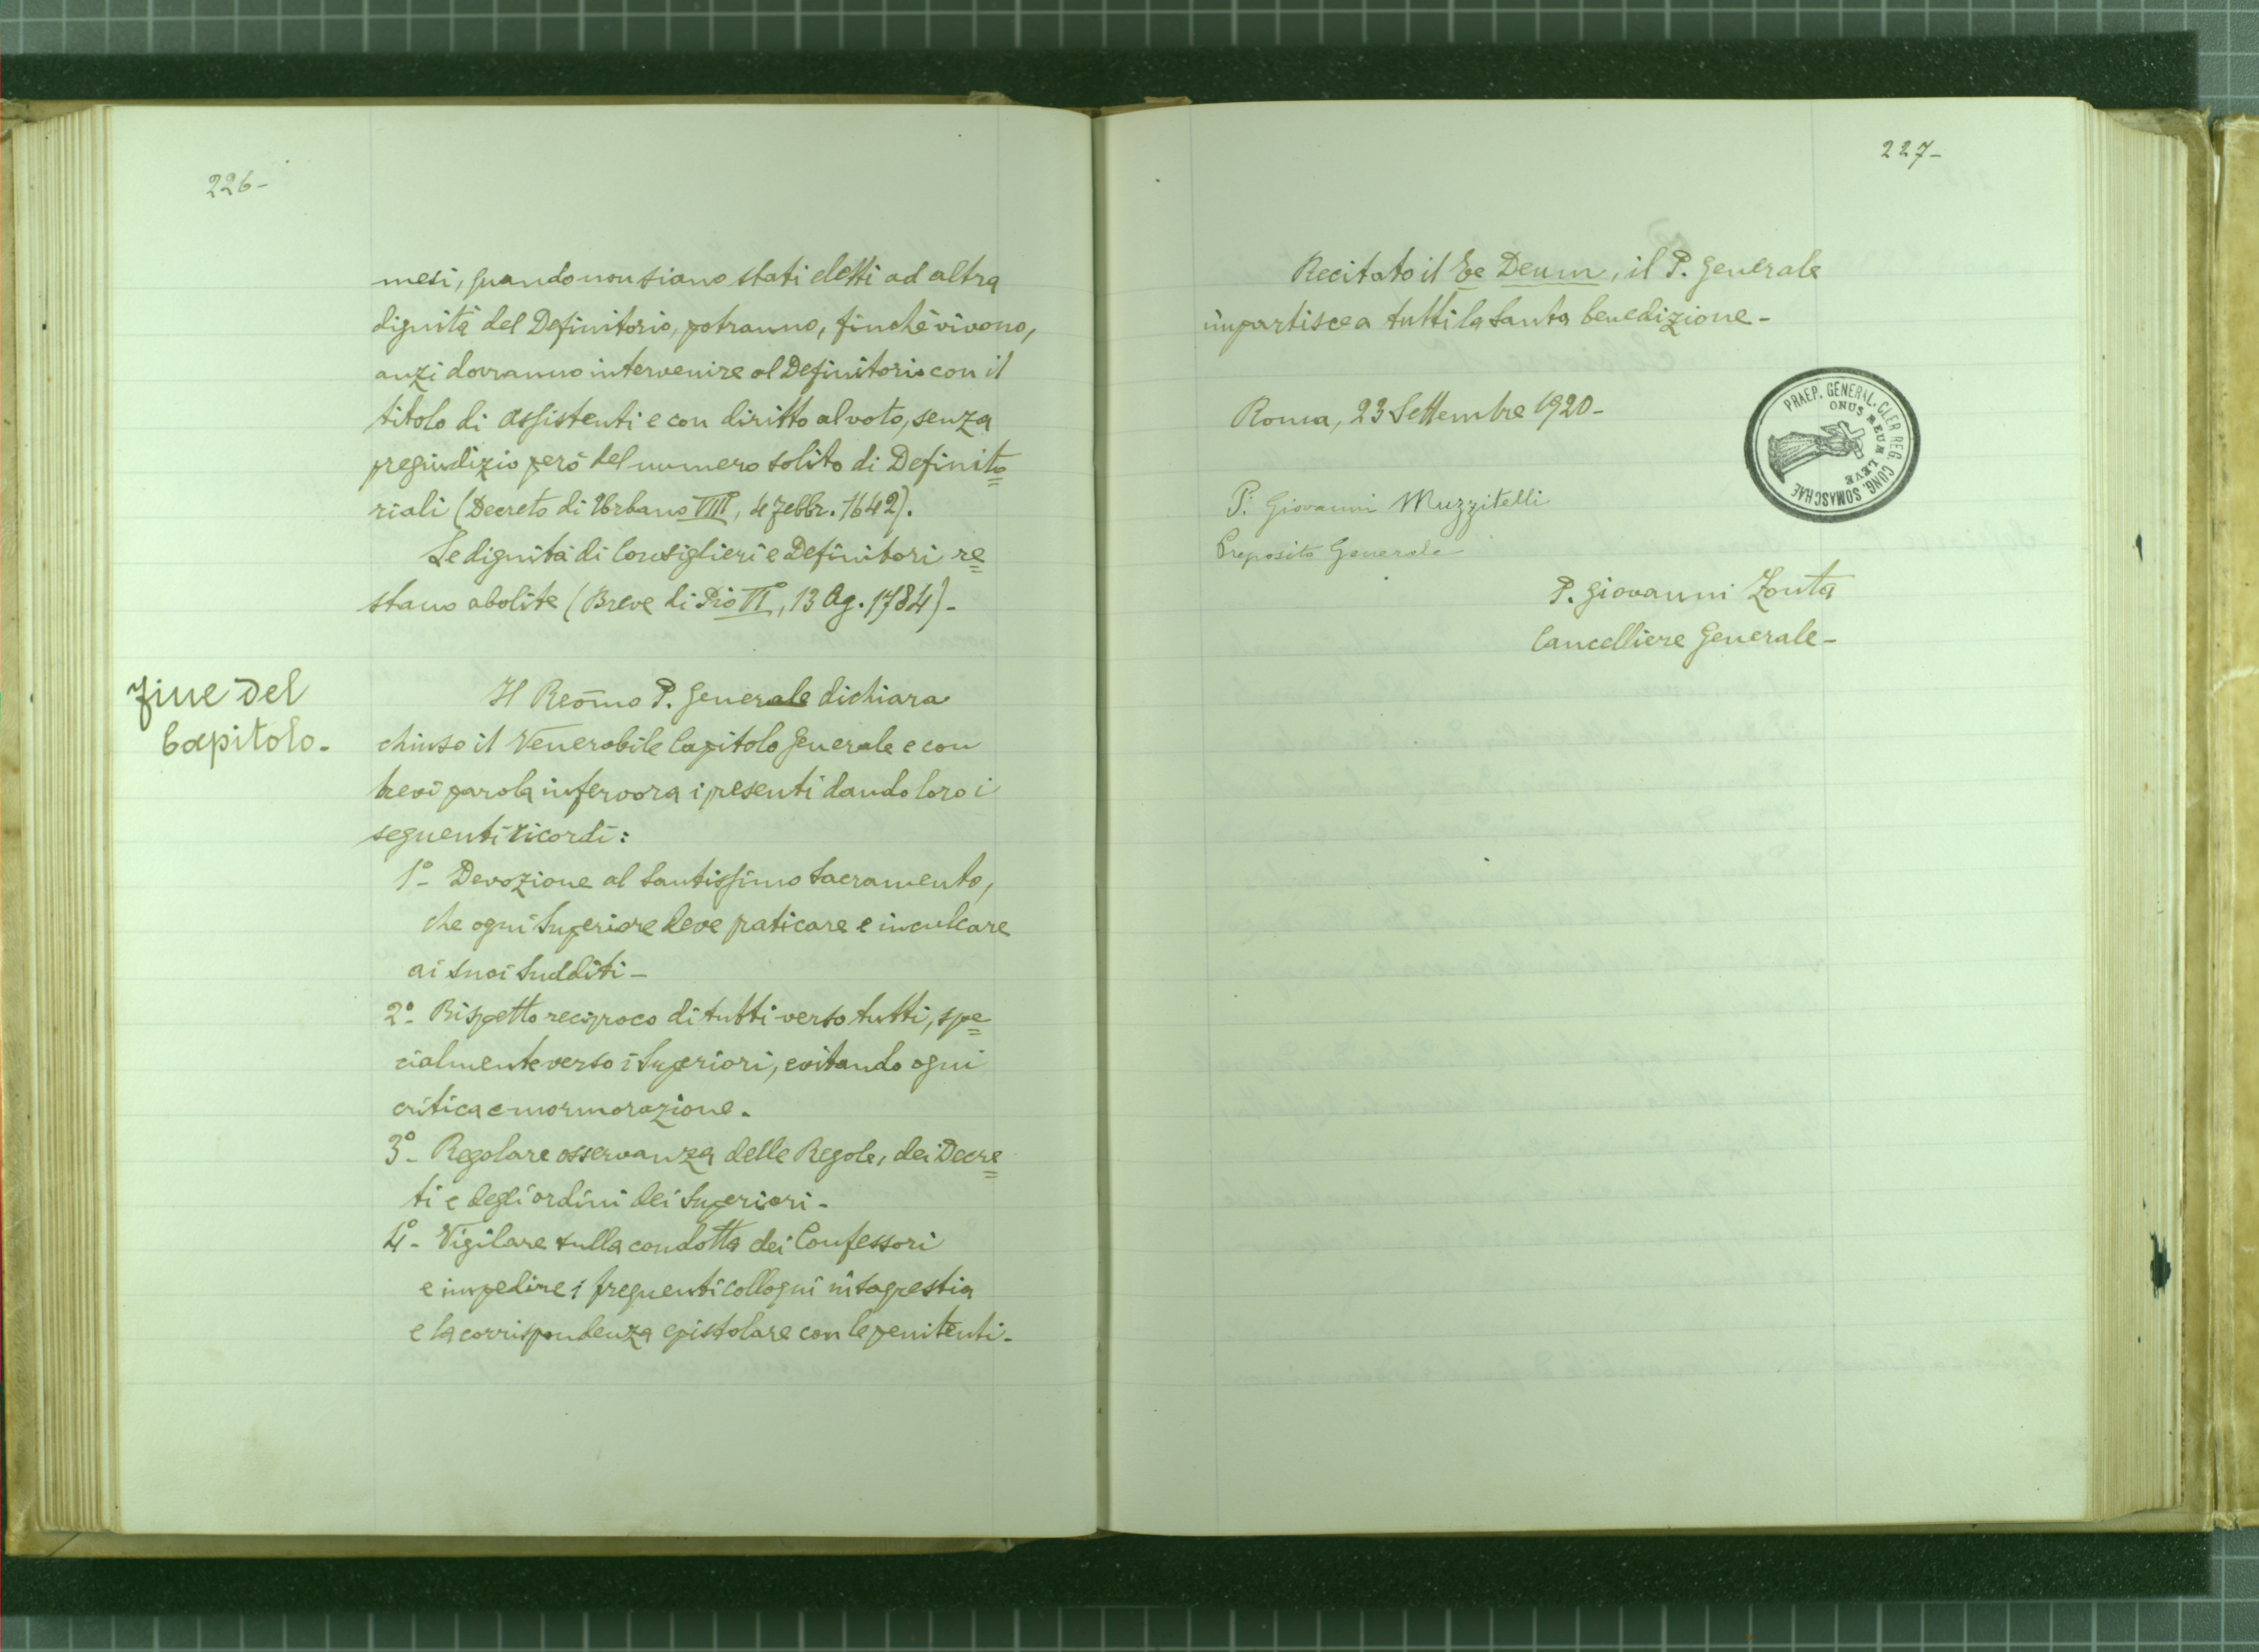 226-
mesi, quando non siano stati eletti ad altra
dignità del Definitorio, potranno, finchè vivono,
anzi dovranno intervenire al Definitorio con il
titolo di Assistenti e con diritto al voto, senza
pregiudizio però del numero solito di Definito=
riali (Decreto di Urbano VIII°, 4 Febbr. 1642).
Le dignità di Consiglieri e Definitori re=
stano abolite (Breve di Pio VI°, 13 Ag. 1784)-
Fine del
Capitolo.
Il Reōmo P. Generale dichiara
chiuso il Venerabile Capitolo generale e con
brevi parola infervora i presenti dando loro i
seguenti ricordi:
1°- Devozione al Santissimo Sacramento,
che ogni Superiore deve praticare e inculcare
ai suoi sudditi-
2°- Rispetto reciproco di tutti verso tutti, spe=
cialmente verso i Superiori, evitando ogni
critica e mormorazione.
3°- Regolare osservanza delle Regole, dei Decre=
ti e degli ordini dei Superiori-
4°- Vigilare sulla condotta dei Confessori
e impedire i frequenti colloqui in sagrestia
e la corrispondenza epistolare con le penitenti-
227-
Recitato il Te Deum, il P. Generale
impartisce a tutti la Santa benedizione-
Roma, 23 Settembre 1920-
PRAEP. GENERAL. CLER REG. CONG. SOMASCHAE
ONUS MEUM LEVE
P. Giovanni Muzzitelli
Preposito Generale
P. Giovanni Zonta
Cancelliere Generale-